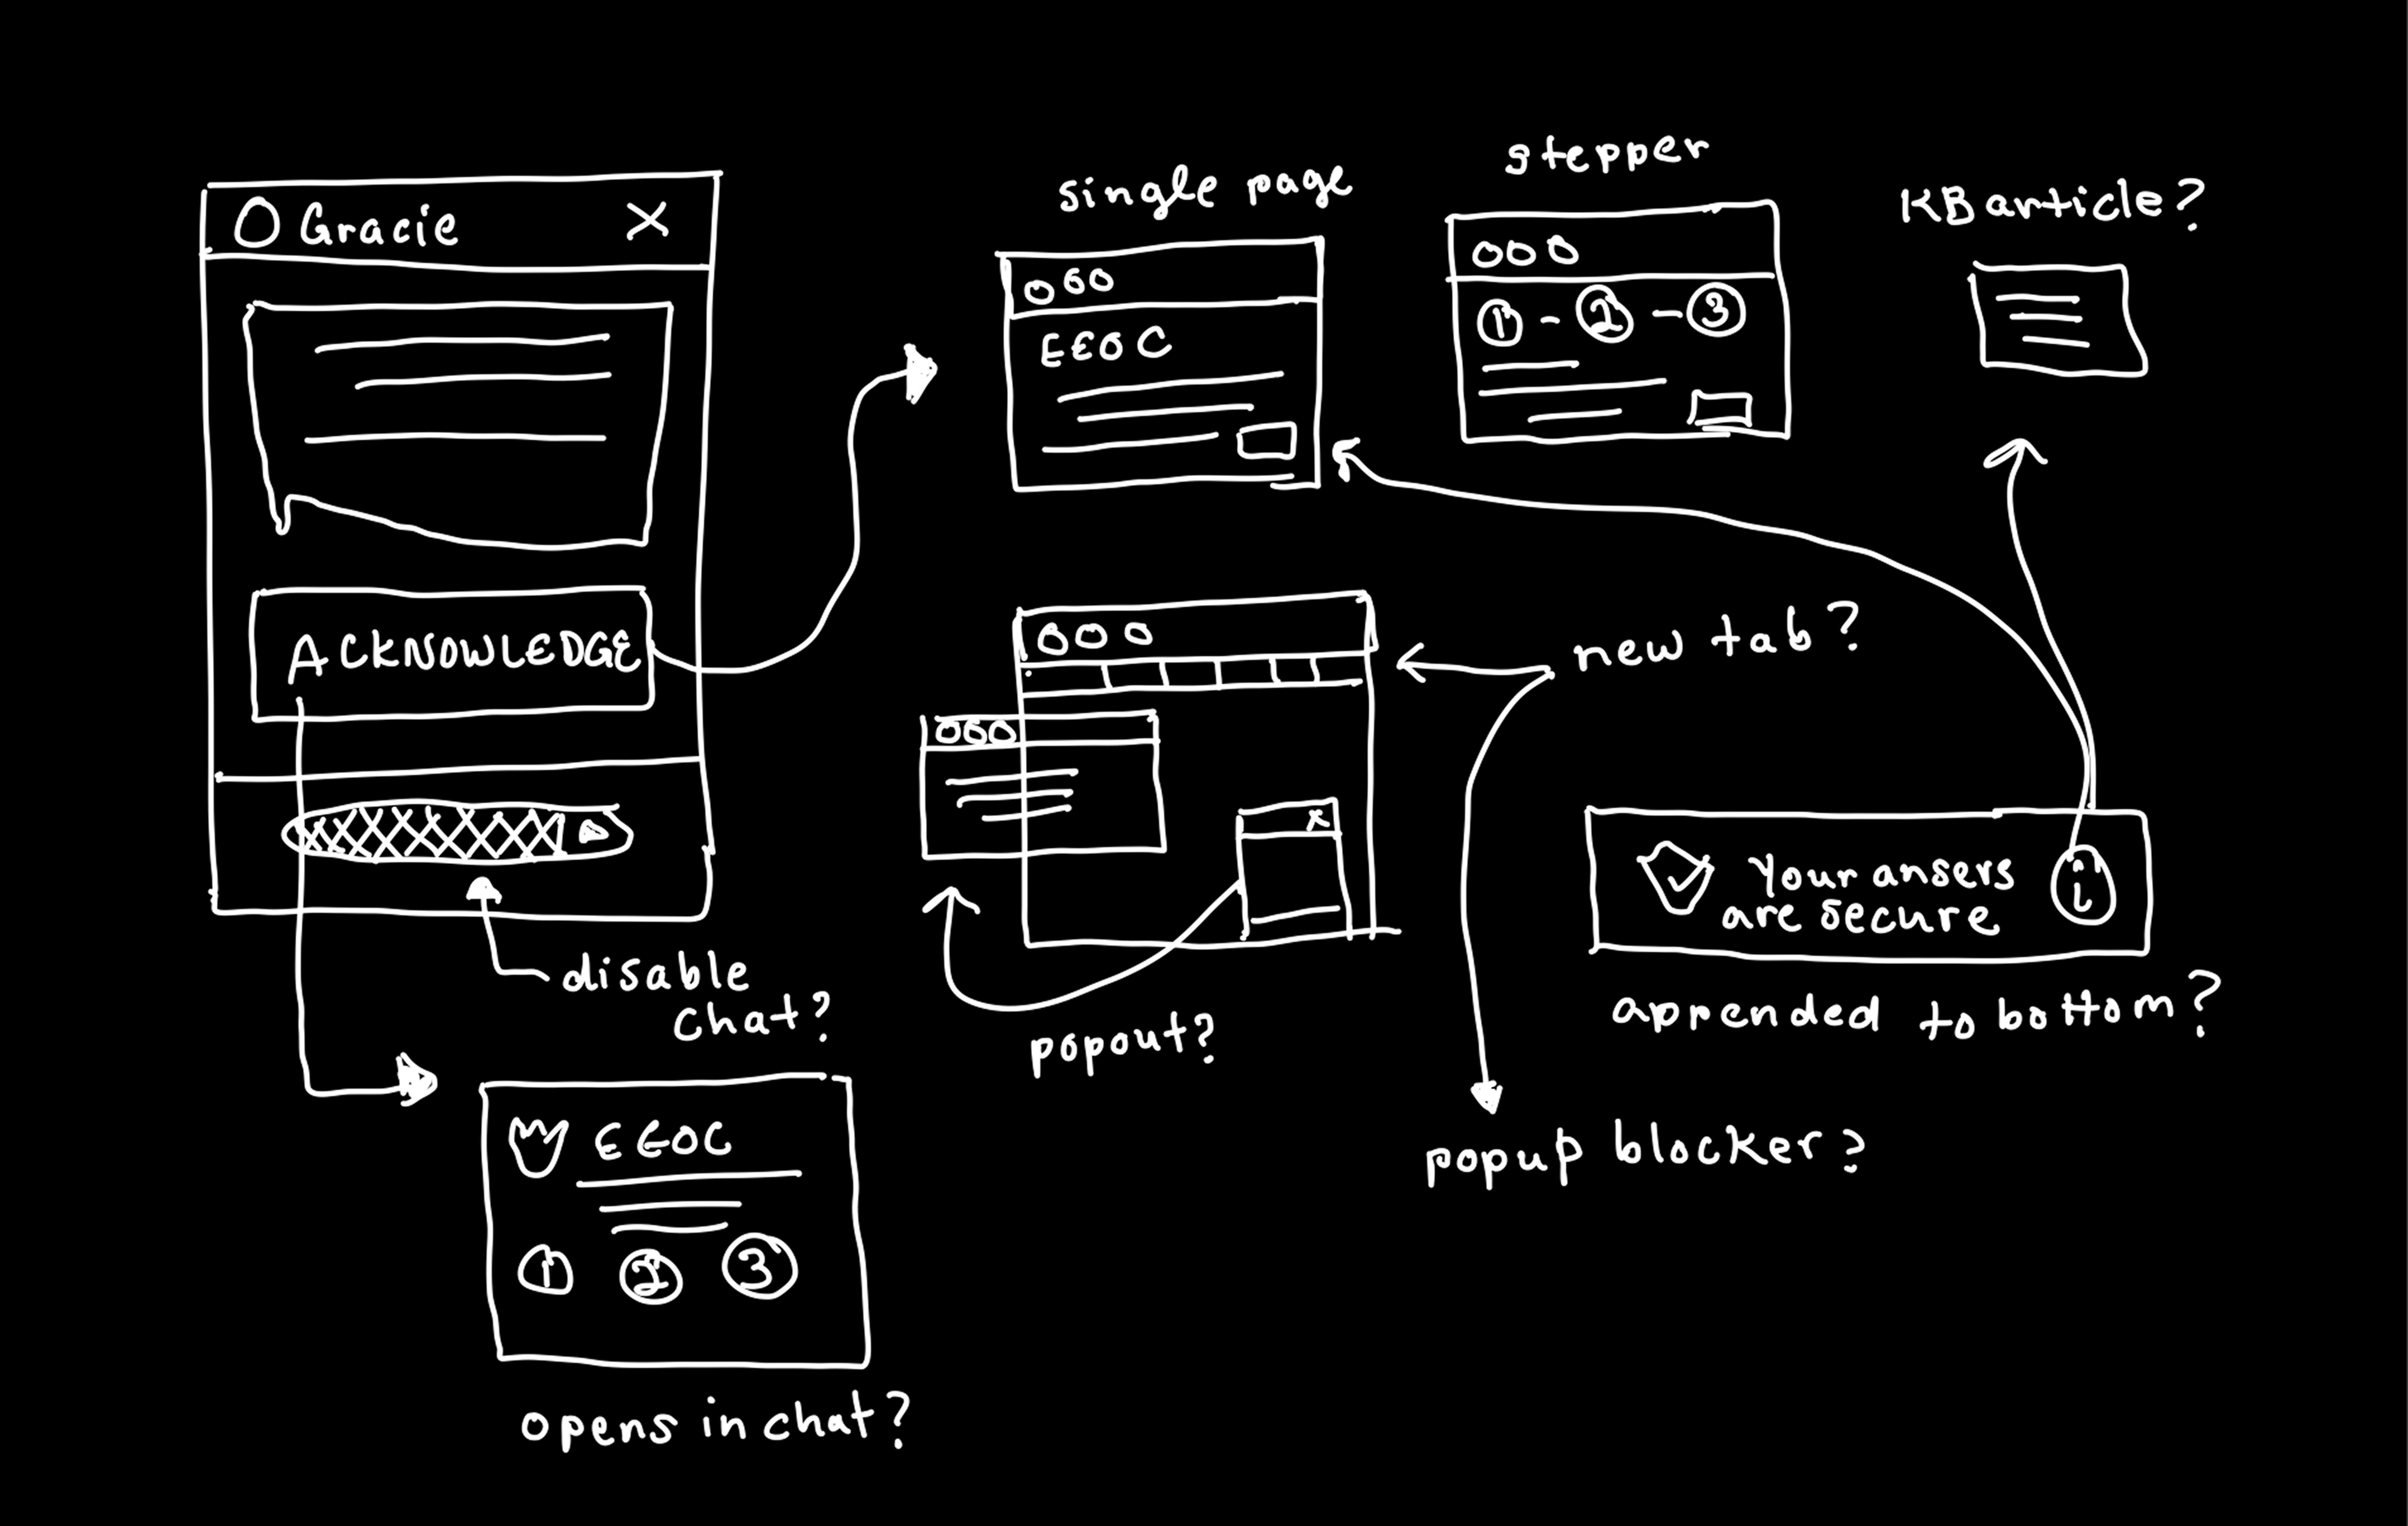 Gracie X
ACKNOWLEDGE
disable
chat?
EEOC
1 2 3
opens in chat?
single page
EEOC
stepper
1 - 2 - 3
KB article?
new tab?
popout?
popup blocker?
Your ansers
are secure
i
appended to bottom?